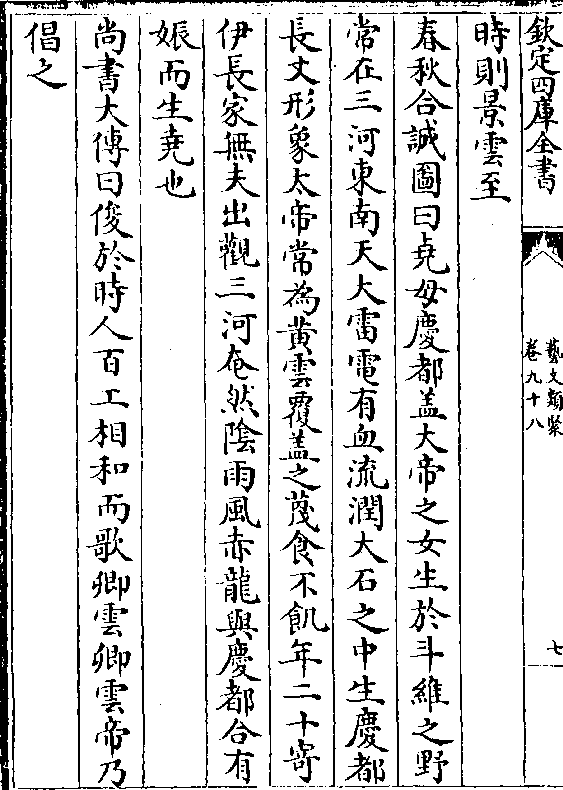 欽定四庫全書
藝文類聚
卷九十八
七
時則景雲至
春秋合誠圖曰堯母慶都蓋大帝之女生於斗維之野
常在三河東南天大雷電有血流潤大石之中生慶都
長丈形象太帝常為黃雲覆蓋之蔑食不飢年二十寄
伊長家無夫出觀三河奄然陰雨風赤龍與慶都合有
娠而生堯也
尚書大傳曰俊於時人百工相和而歌卿雲卿雲帝乃
倡之